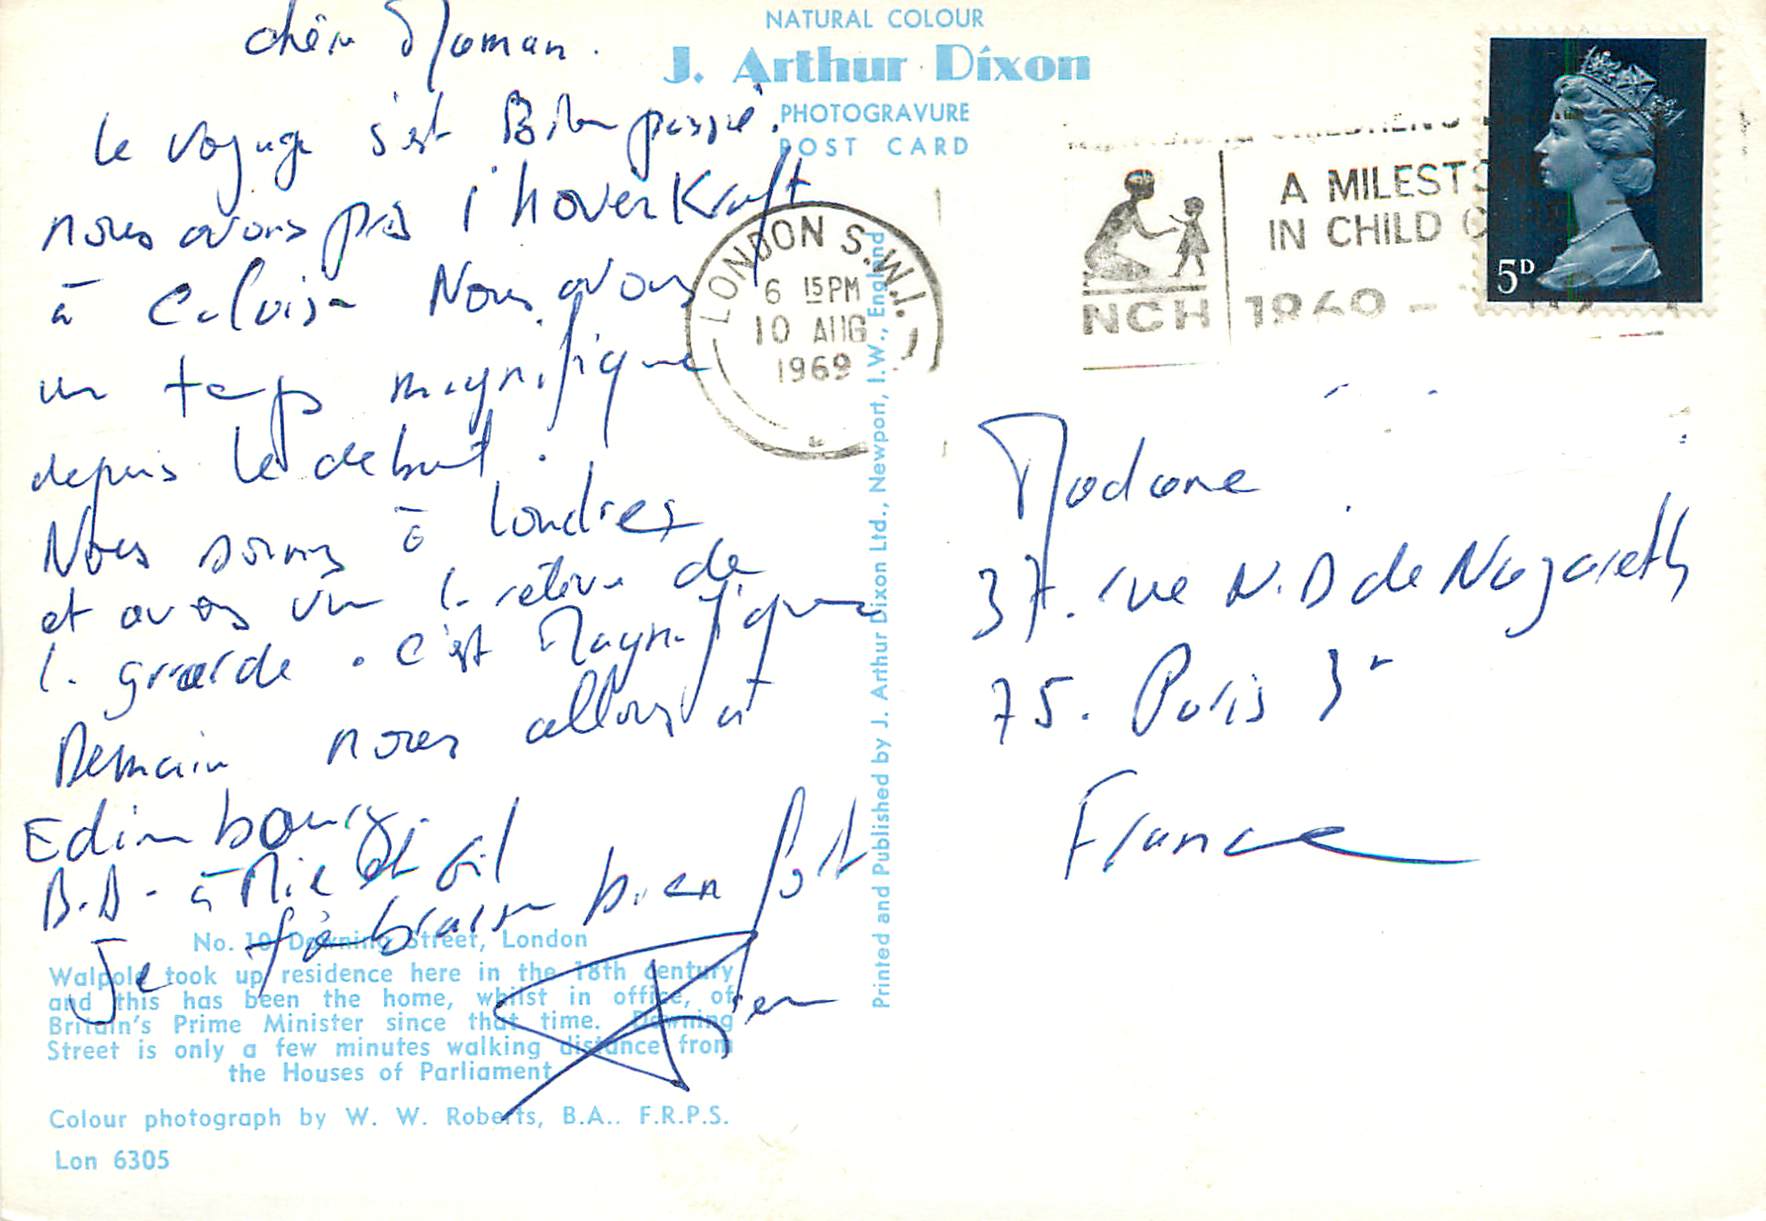 chère Maman.
Le voyage s'est Bien passé.
nous avons pris l'hoverKraft
à Calais. Nous avons
un temps magnifique
depuis le debut.
Nous sommes à Londres
et avons vu la relève de
la garde. C'est Magnifique
Demain nous allons à
Edimbourg.
B.B - à Mie et Gil
Je t'embrasse bien fort
No. 10 Downing Street, London
Walpole took up residence here in the 18th century
and this has been the home, whilst in office, of
Britain's Prime Minister since that time. Downing
Street is only a few minutes walking distance from
the Houses of Parliament
Colour photograph by W. W. Roberts, B.A.. F.R.P.S.
Lon 6305
NATURAL COLOUR
J. Arthur Dixon
PHOTOGRAVURE
POST CARD
Printed and Published by J. Arthur Dixon Ltd., Newport, I.W., England
LONDON S.W.1.
6 15PM
10 AUG
1969
CHILDREN'S
A MILESTONE
IN CHILD CARE
NCH
1869 - 1969
5D
Madame
37. rue N.D de Nazareth
75. Paris 3e
France